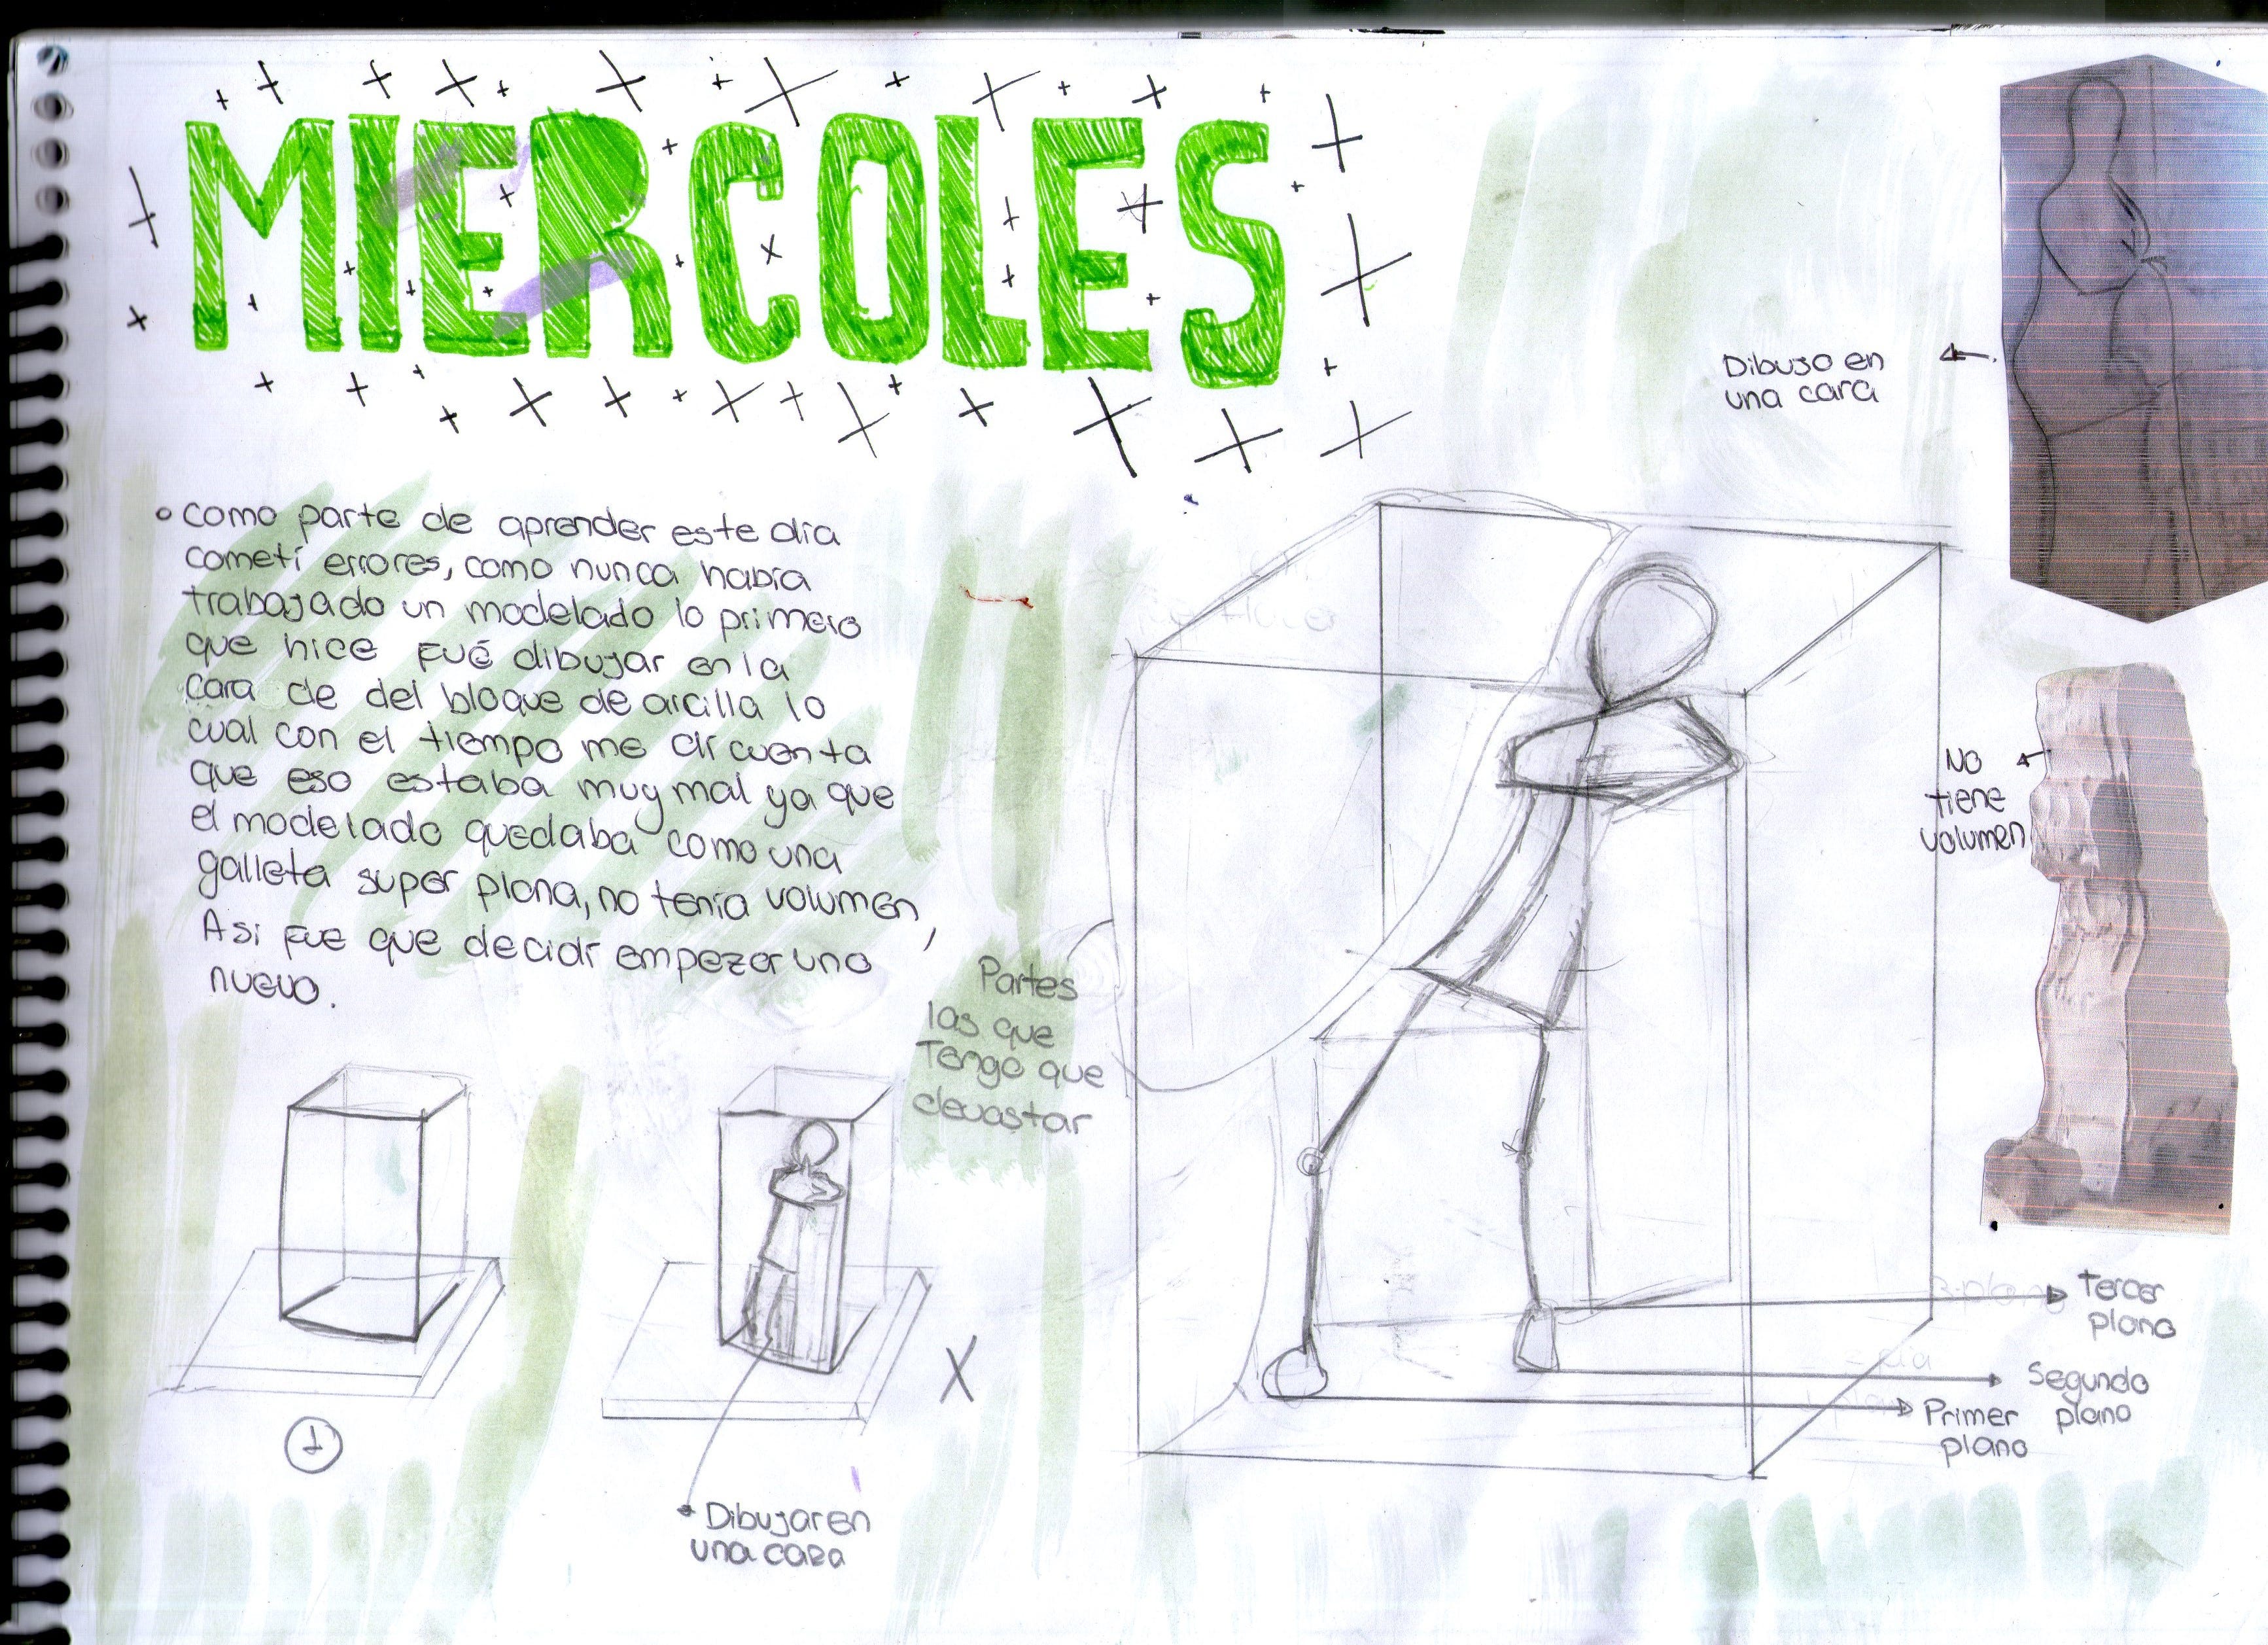 MIERCOLES
como parte de aprender este día
cometí errores, como nunca había
trabajado un modelado lo primero
que hice fué dibujar en la
cara de del bloque de arcilla lo
cual con el tiempo me di cuenta
que eso estaba muy mal ya que
el modelado quedaba como una
galleta super plana, no tenía volumen,
Asi fue que decidí empezar uno
nuevo.
Dibujo en
una cara
No
tiene
volumen
Partes
las que
Tengo que
devastar
1
X
Dibujar en
una cara
Tercer
plano
Segundo
plano
Primer
plano